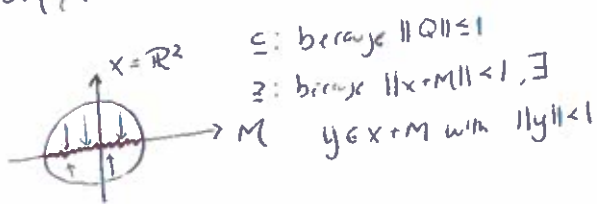 X = ℝ²
⊆: because ||Q|| ≤ 1
⊇: because ||x+M|| < 1, ∃
M
y ∈ x+M with ||y|| < 1